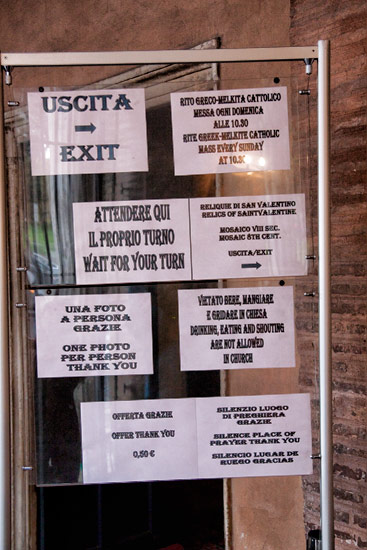 USCITA
→
EXIT
RITO GRECO-MELKITA CATTOLICO
MESSA OGNI DOMENICA
ALLE 10.30
RITE GREEK-MELKITE CATHOLIC
MASS EVERY SUNDAY
AT 10.30
ATTENDERE QUI
IL PROPRIO TURNO
WAIT FOR YOUR TURN
RELIQUIE DI SAN VALENTINO
RELICS OF SAINTVALENTINE
MOSAICO VIII SEC.
MOSAIC 8TH CENT.
USCITA/EXIT
→
UNA FOTO
A PERSONA
GRAZIE
ONE PHOTO
PER PERSON
THANK YOU
VIETATO BERE, MANGIARE
E GRIDARE IN CHIESA
DRINKING, EATING AND SHOUTING
ARE NOT ALLOWED
IN CHURCH
OFFERTA GRAZIE
OFFER THANK YOU
0,50 €
SILENZIO LUOGO
DI PREGHIERA
GRAZIE
SILENCE PLACE OF
PRAYER THANK YOU
SILENCIO LUGAR DE
RUEGO GRACIAS